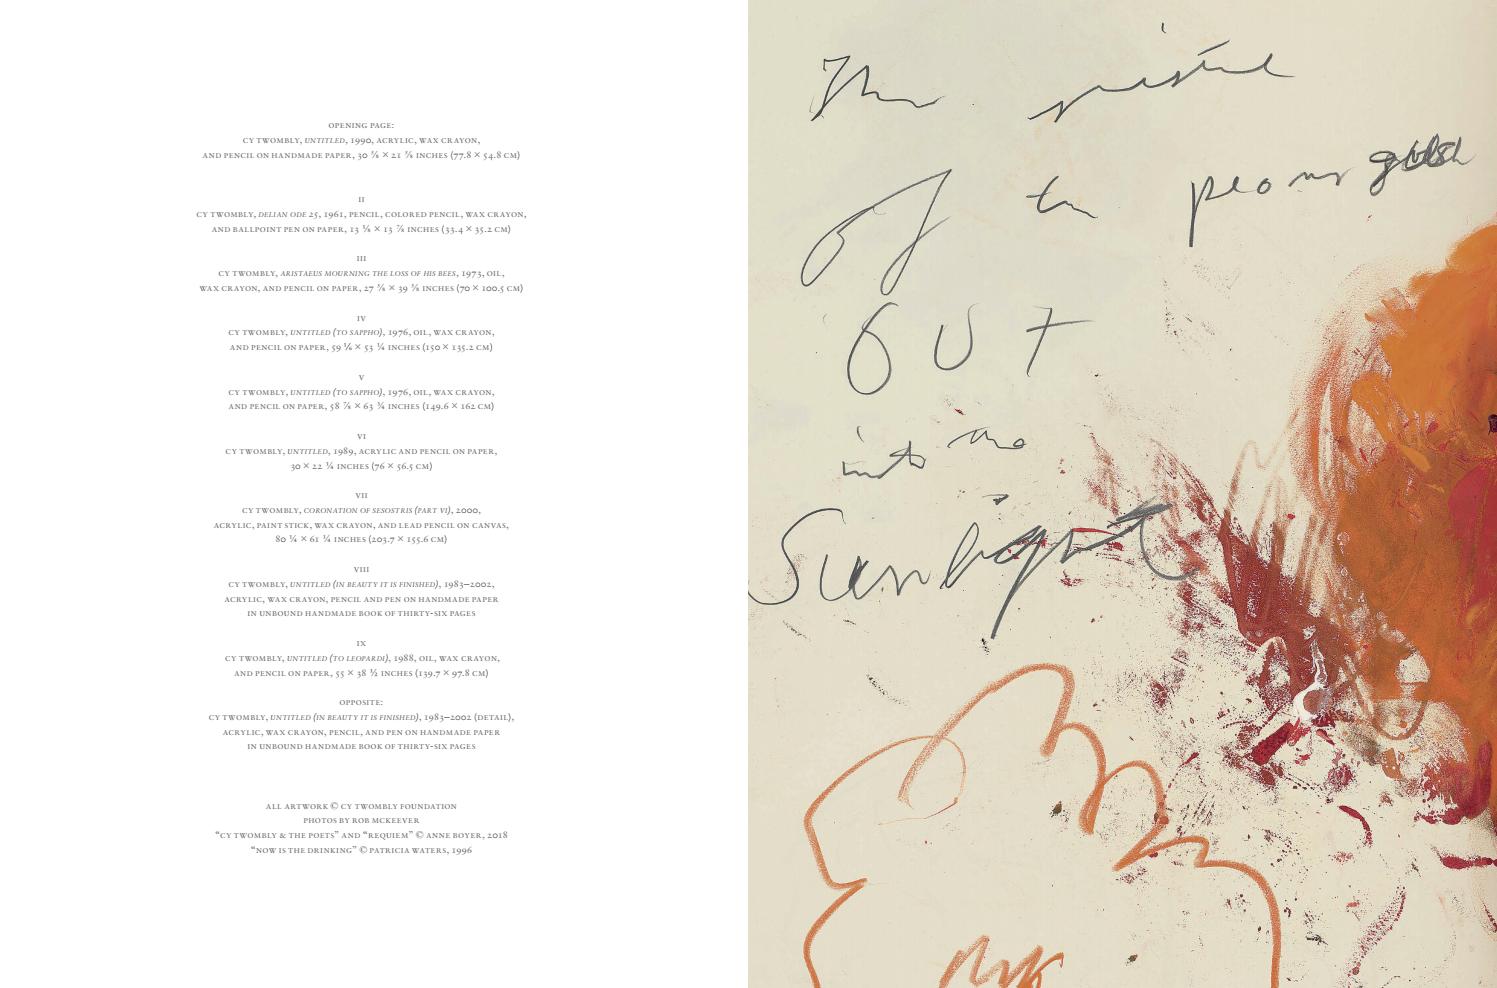 OPENING PAGE:
CY TWOMBLY, UNTITLED, 1990, ACRYLIC, WAX CRAYON,
AND PENCIL ON HANDMADE PAPER, 30 ⅝ × 21 ⅝ INCHES (77.8 × 54.8 CM)
II
CY TWOMBLY, DELIAN ODE 25, 1961, PENCIL, COLORED PENCIL, WAX CRAYON,
AND BALLPOINT PEN ON PAPER, 13 ⅛ × 13 ⅞ INCHES (33.4 × 35.2 CM)
III
CY TWOMBLY, ARISTAEUS MOURNING THE LOSS OF HIS BEES, 1973, OIL,
WAX CRAYON, AND PENCIL ON PAPER, 27 ⅝ × 39 ⅝ INCHES (70 × 100.5 CM)
IV
CY TWOMBLY, UNTITLED (TO SAPPHO), 1976, OIL, WAX CRAYON,
AND PENCIL ON PAPER, 59 ⅛ × 53 ¼ INCHES (150 × 135.2 CM)
V
CY TWOMBLY, UNTITLED (TO SAPPHO), 1976, OIL, WAX CRAYON,
AND PENCIL ON PAPER, 58 ⅞ × 63 ¾ INCHES (149.6 × 162 CM)
VI
CY TWOMBLY, UNTITLED, 1989, ACRYLIC AND PENCIL ON PAPER,
30 × 22 ¼ INCHES (76 × 56.5 CM)
VII
CY TWOMBLY, CORONATION OF SESOSTRIS (PART VI), 2000,
ACRYLIC, PAINT STICK, WAX CRAYON, AND LEAD PENCIL ON CANVAS,
80 ¼ × 61 ¼ INCHES (203.7 × 155.6 CM)
VIII
CY TWOMBLY, UNTITLED (IN BEAUTY IT IS FINISHED), 1983–2002,
ACRYLIC, WAX CRAYON, PENCIL AND PEN ON HANDMADE PAPER
IN UNBOUND HANDMADE BOOK OF THIRTY-SIX PAGES
IX
CY TWOMBLY, UNTITLED (TO LEOPARDI), 1988, OIL, WAX CRAYON,
AND PENCIL ON PAPER, 55 × 38 ½ INCHES (139.7 × 97.8 CM)
OPPOSITE:
CY TWOMBLY, UNTITLED (IN BEAUTY IT IS FINISHED), 1983–2002 (DETAIL),
ACRYLIC, WAX CRAYON, PENCIL, AND PEN ON HANDMADE PAPER
IN UNBOUND HANDMADE BOOK OF THIRTY-SIX PAGES
ALL ARTWORK © CY TWOMBLY FOUNDATION
PHOTOS BY ROB MCKEEVER
“CY TWOMBLY & THE POETS” AND “REQUIEM” © ANNE BOYER, 2018
“NOW IS THE DRINKING” © PATRICIA WATERS, 1996
The pistil
of the peony gush
OUT
into the
Sunlight